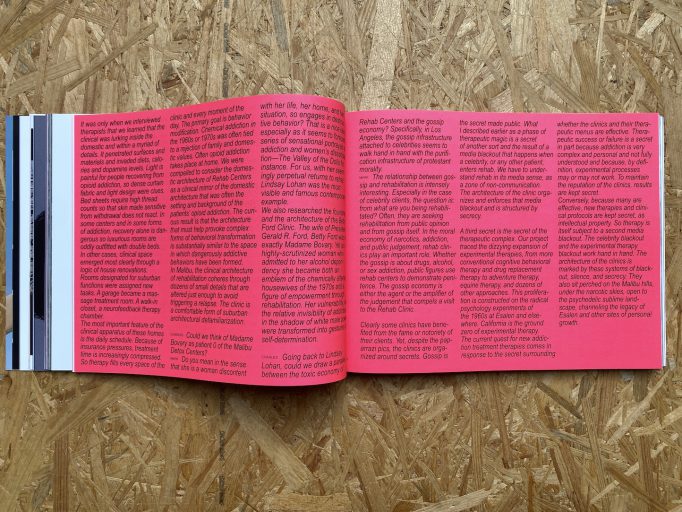 It was only when we interviewed
therapists that we learned that the
clinical was lurking inside the
domestic and within a myriad of
details. It penetrated surfaces and
materials and invaded diets, calo-
ries and dopamine levels. Light is
painful for people recovering from
opioid addiction, so dense curtain
fabric and light design were clues.
Bed sheets require high thread
counts so that skin made sensitive
from withdrawal does not react. In
some centers and in some forms
of addiction, recovery alone is dan-
gerous so luxurious rooms are
oddly outfitted with double beds.
In other cases, clinical space
emerged most clearly through a
logic of house renovations.
Rooms designated for suburban
functions were assigned new
tasks. A garage became a mas-
sage treatment room. A walk-in
closet, a neurofeedback therapy
chamber.
The most important feature of the
clinical apparatus of these homes
is the daily schedule. Because of
insurance pressures, treatment
time is increasingly compressed.
So therapy fills every space of the
clinic and every moment of the
day. The primary goal is behavior
modification. Chemical addiction in
the 1960s or 1970s was often tied
to a rejection of family and domes-
tic values. Often opioid addiction
takes place at home. We were
compelled to consider the domes-
tic architecture of Rehab Centers
as a clinical mirror of the domestic
architecture that was often the
setting and background of the
patients' opioid addiction. The cu-
rious result is that the architecture
that must help provoke complex
forms of behavioral transformation
is substantially similar to the space
in which dangerously addictive
behaviors have been formed.
In Malibu, the clinical architecture
of rehabilitation coheres through
dozens of small details that are
altered just enough to avoid
triggering a relapse. The clinic is
a comfortable form of suburban
architectural detailmarization
Could we think of Madame
Bovary as patient 0 of the Malibu
Detox Centers?
Do you mean in the sense
that she is a woman discontent
with her life, her home, and
situation, so engages in
tive behavior? That is a
especially as it seems to
series of sensational portrayals
addiction and women's
tion—The Valley of the Dolls
instance. For us, with her
ingly perpetual returns to
Lindsay Lohan was the most
visible and famous contemporary
example.
We also researched the founding
and the architecture of the Betty
Ford Clinic. The wife of President
Gerald R. Ford, Betty Ford was
exactly Madame Bovary. He
highly-scrutinized woman who
admitted to her alcohol depen-
dency she became both an
emblem of the chemically altered
housewives of the 1970s and a
figure of empowerment through
rehabilitation. Her vulnerability
the relative invisibility of addiction
in the shadow of white male
were transformed into gestures of
self-determination.
Going back to Lindsay
Lohan, could we draw a parallel
between the toxic economy of
Rehab Centers and the gossip
economy? Specifically, in Los
Angeles, the gossip infrastructure
attached to celebrities seems to
walk hand in hand with the purifi-
cation infrastructure of protestant
morality.
The relationship between gos-
sip and rehabilitation is intensely
interesting. Especially in the case
of celebrity clients, the question is
from what are you being rehabili-
tated? Often, they are seeking
rehabilitation from public opinion
and from gossip itself. In the moral
economy of narcotics, addiction,
and public judgement, rehab clin-
ics play an important role. Whether
the gossip is about drugs, alcohol,
or sex addiction, public figures use
rehab centers to demonstrate peni-
tence. The gossip economy is
either the agent or the amplifier of
the judgement that compels a visit
to the Rehab Clinic.
Clearly some clinics have bene-
fited from the fame or notoriety
of their clients. Yet, despite the pap-
arrazi pics, the clinics are organ-
ized around secrets. Gossip is
the secret made public. What
I described earlier as a phase of
therapeutic magic is a secret
of another sort and the result of a
media blackout that happens when
a celebrity, or any other patient
enters rehab. We have to under-
stand rehab in its media sense, as
a zone of non-communication.
The architecture of the clinic orga-
nizes and enforces that media
blackout and is structured by
secrecy.
A third secret is the secret of the
therapeutic complex. Our project
traced the dizzying expansion of
experimental therapies, from more
conventional cognitive behavioral
therapy and drug replacement
therapy to adventure therapy,
equine therapy, and dozens of
other approaches. This prolifera-
tion is constructed on the radical
psychology experiments of
the 1960s at Esalen and else-
where. California is the ground
zero of experimental therapy.
The current quest for new addic-
tion treatment therapies comes in
response to the secret surrounding
whether the clinics and their thera-
peutic menus are effective. Thera-
peutic success or failure is a secret
in part because addiction is very
complex and personal and not fully
understood and because, by defi-
nition, experimental processes
may or may not work. To maintain
the reputation of the clinics, results
are kept secret.
Conversely, because many are
effective, new therapies and clini-
cal protocols are kept secret, as
intellectual property. So therapy is
itself subject to a second media
blackout. The celebrity blackout
and the experimental therapy
blackout work hand in hand. The
architecture of the clinics is
marked by these systems of black-
out, silence, and secrecy. They
also sit perched on the Malibu hills,
under the narcotic skies, open to
the psychedelic sublime land-
scape, channeling the legacy of
Esalen and other sites of personal
growth.